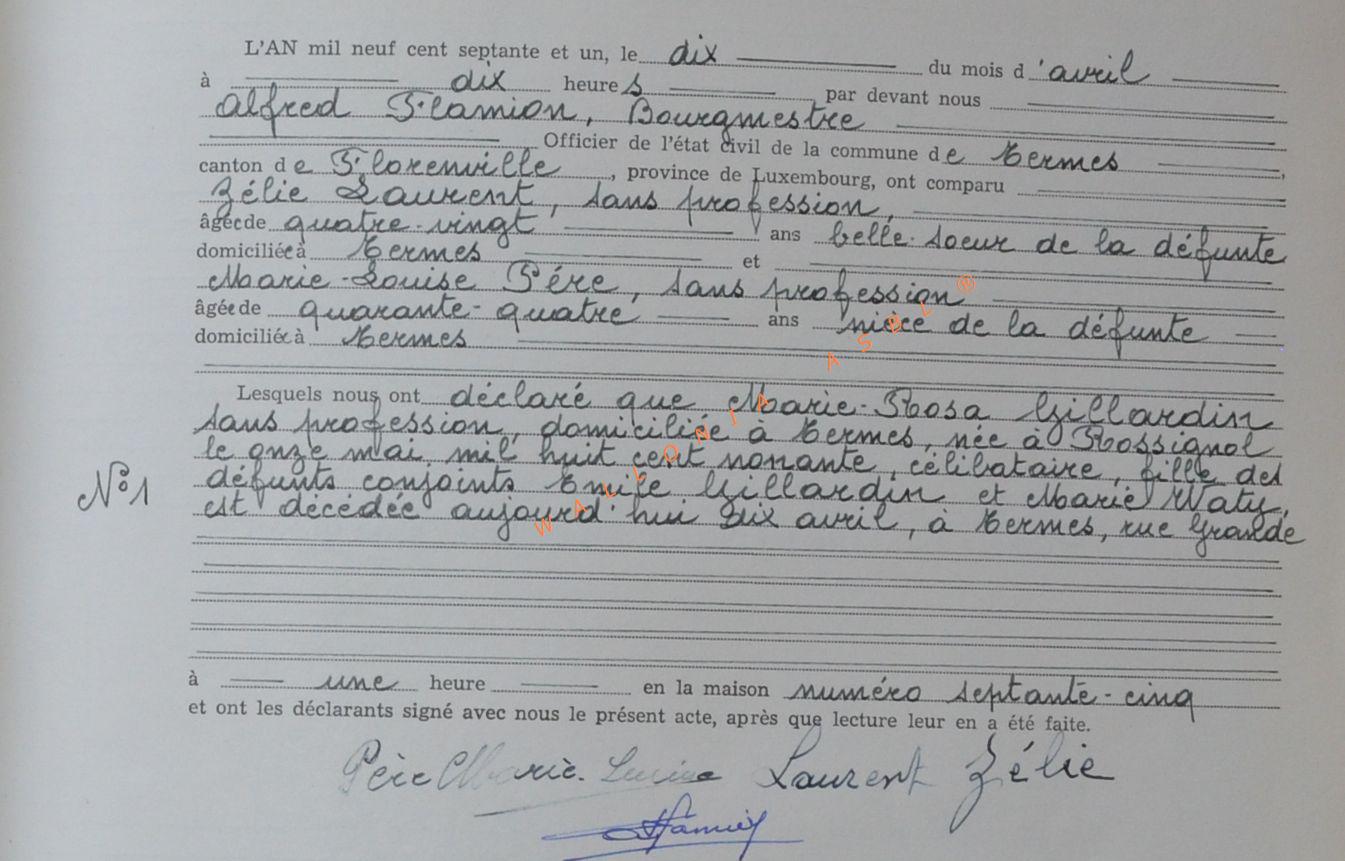 L'AN mil neuf cent septante et un, le dix du mois d'avril
à dix heures par devant nous
Alfred Flamion, Bourgmestre
Officier de l'état civil de la commune de Termes
canton de Florenville, province de Luxembourg, ont comparu
Zélie Laurent, sans profession,
âgée de quatre-vingt ans belle-soeur de la défunte
domiciliée à Termes et
Marie-Louise Père, sans profession
âgée de quarante-quatre ans nièce de la défunte
domiciliée à Termes
Lesquels nous ont déclaré que Marie-Rosa Gillardin
sans profession, domiciliée à Termes, née à Rossignol
le onze mai mil huit cent nonante, célibataire, fille des
N° 1
défunts conjoints Emile Gillardin et Marie Waty,
est décédée aujourd'hui dix avril, à Termes, rue Grande
à une heure en la maison numéro septante-cinq
et ont les déclarants signé avec nous le présent acte, après que lecture leur en a été faite.
Père Marie Laurent Zélie
WALLONIA ASBL ®